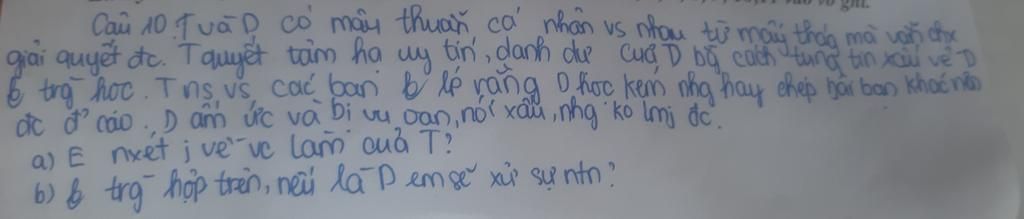 Câu 10. T và D có mâu thuẫn cá nhân vs nhau từ mấy tháng mà vẫn chx
giải quyết đc. T quyết tâm hạ uy tín, danh dự của D bg cách tung tin xấu về D
trg học. T ns vs các bạn lớp rằng D học kém nhg hay chép bài bạn khác nên
đc đ' cao., D ấm ức vì bị vu oan, nói xấu, nhg ko lmj đc.
a) E nxét j về vc làm của T?
b) trg hợp trên, nếu là D em sẽ xử sự ntn?